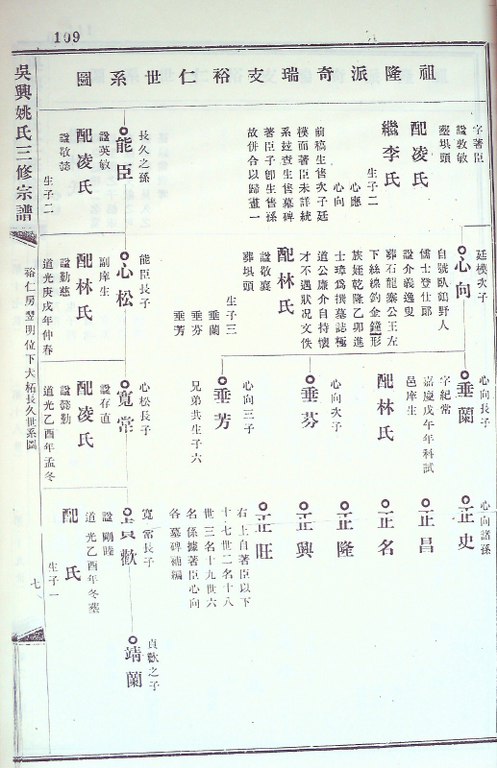 109
祖隆派奇瑞支裕仁世系圖
字著臣
諡敦敏
塟垻頭
配凌氏
繼李氏
生子二
心應
心向
前稿生售次子廷
樸而著臣未詳統
系玆查生售墓碑
著臣子卽生售孫
故併合以歸畫一
長久之孫
能臣
諡英敏
配凌氏
諡敬懿
生子二
廷樸次子
心向
自號臥鷂野人
儒士登仕郎
諡介義逸叟
葬石龍寨公王左
下絲線釣金鐘形
族姪乾隆乙卯進
士璋爲撰墓誌極
道公廉介自持懷
才不遇狀况文佚
配林氏
諡敬襄
葬垻頭
生子三
垂蘭
垂芬
垂芳
能臣長子
心松
副庠生
配林氏
諡勤慈
道光庚戌年仲春
心向長子
垂蘭
字紀常
嘉慶戊午年科試
邑庠生
配林氏
心向次子
垂芬
心向三子
垂芳
兄弟共生子六
心松長子
寬常
諡存直
配凌氏
諡懿勤
道光乙酉年孟冬
心向諸孫
正史
正昌
正名
正隆
正興
正旺
右上自著臣以下
十七世二名十八
世三名十九世六
名係據著臣心向
各墓碑補編
寬常長子
貞歡
諡剛睦
道光乙酉年冬塟
配 氏
生子一
貞歡之子
靖蘭
吳興姚氏三修宗譜
裕仁房翌明位下大柘長久世系圖
七